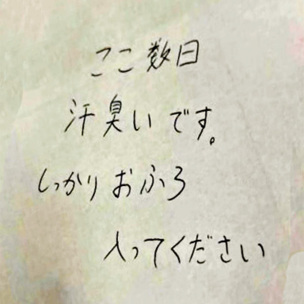 ここ数日
汗臭いです。
しっかりおふろ
入ってください